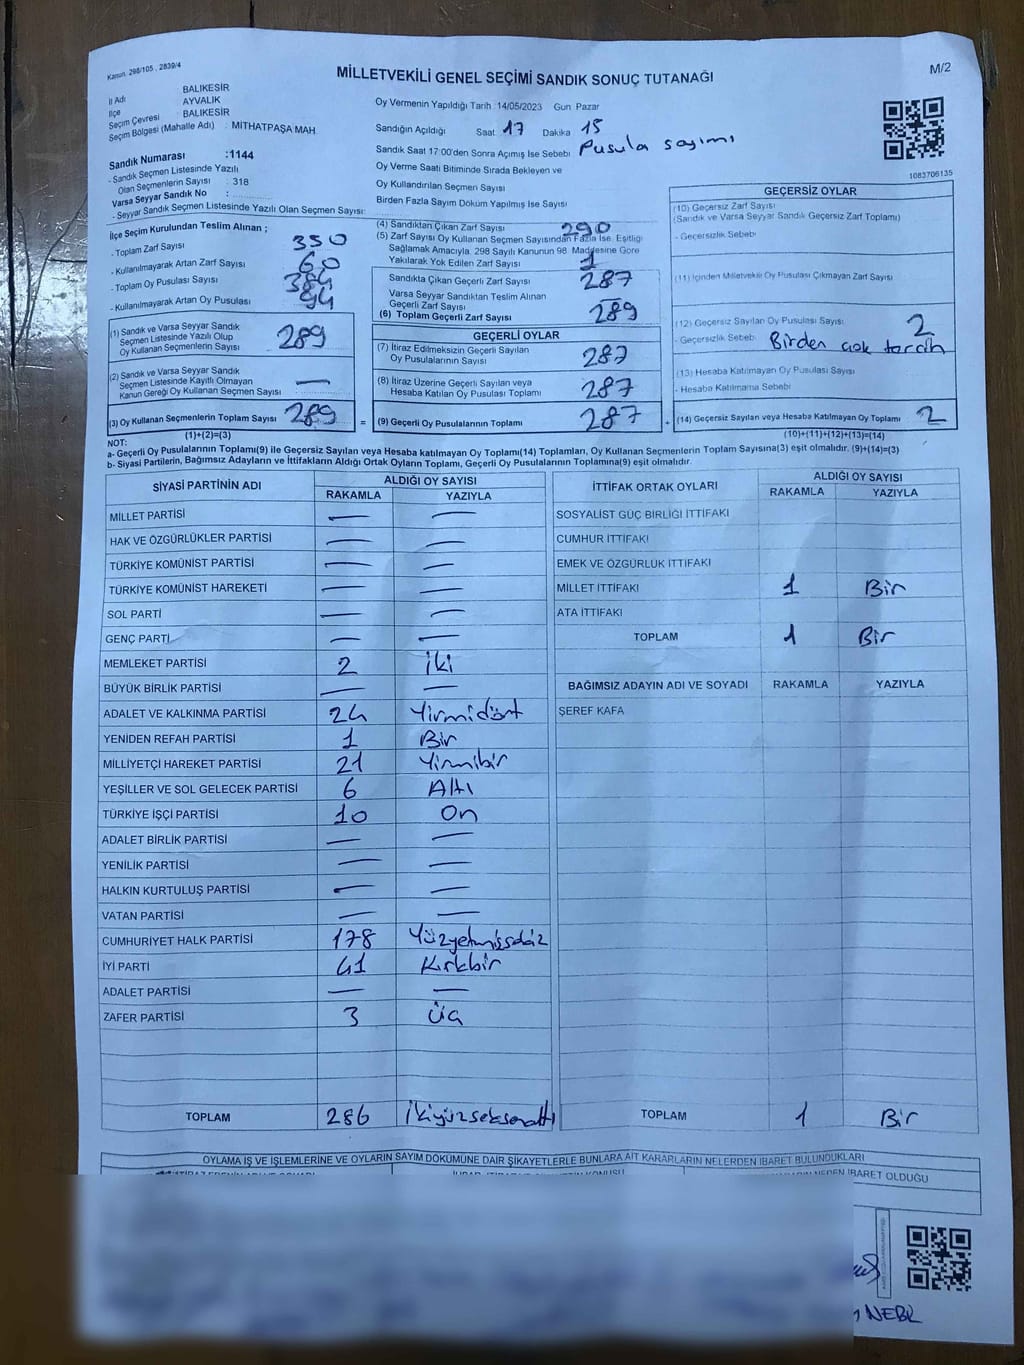 Kanun. 298/105 , 2839/4
MİLLETVEKİLİ GENEL SEÇİMİ SANDIK SONUÇ TUTANAĞI
M/2
İl Adı BALIKESİR
İlçe AYVALIK
Seçim Çevresi BALIKESİR
Seçim Bölgesi (Mahalle Adı) : MİTHATPAŞA MAH
Sandık Numarası :1144
- Sandık Seçmen Listesinde Yazılı
Olan Seçmenlerin Sayısı : 318
Varsa Seyyar Sandık No :
- Seyyar Sandık Seçmen Listesinde Yazılı Olan Seçmen Sayısı:
Oy Vermenin Yapıldığı Tarih 14/05/2023 Gün Pazar
Sandığın Açıldığı Saat 17 Dakika 15
Sandık Saat 17:00'den Sonra Açımış İse Sebebi Pusula sayımı
Oy Verme Saati Bitiminde Sırada Bekleyen ve
Oy Kullandırılan Seçmen Sayısı
Birden Fazla Sayım Döküm Yapılmış İse Sayısı
1083706135
İlçe Seçim Kurulundan Teslim Alınan ;
- Toplam Zarf Sayısı 350
- Kullanılmayarak Artan Zarf Sayısı 60
- Toplam Oy Pusulası Sayısı
- Kullanılmayarak Artan Oy Pusulası 94
(1) Sandık ve Varsa Seyyar Sandık
Seçmen Listesinde Yazılı Olup
Oy Kullanan Seçmenlerin Sayısı 289
(2) Sandık ve Varsa Seyyar Sandık
Seçmen Listesinde Kayıtlı Olmayan
Kanun Gereği Oy Kullanan Seçmen Sayısı —
(3) Oy Kullanan Seçmenlerin Toplam Sayısı 289
(1)+(2)=(3)
(4) Sandıktan Çıkan Zarf Sayısı 290
(5) Zarf Sayısı Oy Kullanan Seçmen Sayısından Fazla İse, Eşitliği
Sağlamak Amacıyla, 298 Sayılı Kanunun 98. Maddesine Göre
Yakılarak Yok Edilen Zarf Sayısı 1
Sandıkta Çıkan Geçerli Zarf Sayısı 287
Varsa Seyyar Sandıktan Teslim Alınan
Geçerli Zarf Sayısı —
(6) Toplam Geçerli Zarf Sayısı 289
GEÇERLİ OYLAR
(7) İtiraz Edilmeksizin Geçerli Sayılan
Oy Pusulalarının Sayısı 287
(8) İtiraz Üzerine Geçerli Sayılan veya
Hesaba Katılan Oy Pusulası Toplamı 287
= (9) Geçerli Oy Pusulalarının Toplamı 287
GEÇERSİZ OYLAR
(10) Geçersiz Zarf Sayısı
(Sandık ve Varsa Seyyar Sandık Geçersiz Zarf Toplamı)
- Geçersizlik Sebebi
(11) İçinden Milletvekili Oy Pusulası Çıkmayan Zarf Sayısı
(12) Geçersiz Sayılan Oy Pusulası Sayısı 2
- Geçersizlik Sebebi Birden çok tercih
(13) Hesaba Katılmayan Oy Pusulası Sayısı
- Hesaba Katılmama Sebebi
+ (14) Geçersiz Sayılan veya Hesaba Katılmayan Oy Toplamı 2
(10)+(11)+(12)+(13)=(14)
NOT:
a- Geçerli Oy Pusulalarının Toplamı(9) ile Geçersiz Sayılan veya Hesaba katılmayan Oy Toplamı(14) Toplamları, Oy Kullanan Seçmenlerin Toplam Sayısına(3) eşit olmalıdır. (9)+(14)=(3)
b- Siyasi Partilerin, Bağımsız Adayların ve İttifakların Aldığı Ortak Oyların Toplamı, Geçerli Oy Pusulalarının Toplamına(9) eşit olmalıdır.
SİYASİ PARTİNİN ADI ALDIĞI OY SAYISI
RAKAMLA YAZIYLA
MİLLET PARTİSİ — —
HAK VE ÖZGÜRLÜKLER PARTİSİ — —
TÜRKİYE KOMÜNİST PARTİSİ — —
TÜRKİYE KOMÜNİST HAREKETİ — —
SOL PARTİ — —
GENÇ PARTİ — —
MEMLEKET PARTİSİ 2 iki
BÜYÜK BİRLİK PARTİSİ — —
ADALET VE KALKINMA PARTİSİ 24 Yirmidört
YENİDEN REFAH PARTİSİ 1 Bir
MİLLİYETÇİ HAREKET PARTİSİ 21 Yirmibir
YEŞİLLER VE SOL GELECEK PARTİSİ 6 Altı
TÜRKİYE İŞÇİ PARTİSİ 10 On
ADALET BİRLİK PARTİSİ — —
YENİLİK PARTİSİ — —
HALKIN KURTULUŞ PARTİSİ — —
VATAN PARTİSİ — —
CUMHURİYET HALK PARTİSİ 178 Yüzyetmişsekiz
İYİ PARTİ 41 Kırkbir
ADALET PARTİSİ — —
ZAFER PARTİSİ 3 Üç
TOPLAM 286 İkiyüzseksenaltı
İTTİFAK ORTAK OYLARI ALDIĞI OY SAYISI
RAKAMLA YAZIYLA
SOSYALİST GÜÇ BİRLİĞİ İTTİFAKI
CUMHUR İTTİFAKI
EMEK VE ÖZGÜRLÜK İTTİFAKI
MİLLET İTTİFAKI 1 Bir
ATA İTTİFAKI
TOPLAM 1 Bir
BAĞIMSIZ ADAYIN ADI VE SOYADI RAKAMLA YAZIYLA
ŞEREF KAFA
TOPLAM 1 Bir
OYLAMA İŞ VE İŞLEMLERİNE VE OYLARIN SAYIM DÖKÜMÜNE DAİR ŞİKAYETLERLE BUNLARA AİT KARARLARIN NELERDEN İBARET BULUNDUKLARI
NEDEN İBARET OLDUĞU